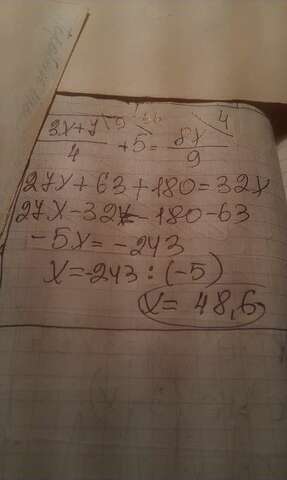 (3x+7)/4 \9 + 5 \36 = 8x/9 \4
27x + 63 + 180 = 32x
27x - 32x = -180 - 63
-5x = -243
x = -243 : (-5)
x = 48,6